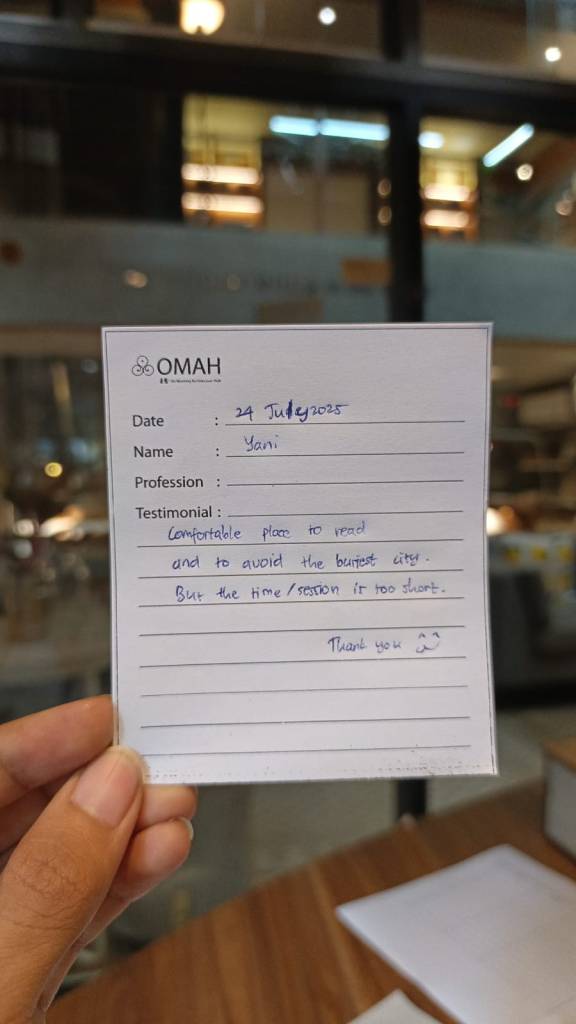 OMAH
Date : 24 July 2025
Name : Yani
Profession :
Testimonial :
Comfortable place to read
and to avoid the buriest city.
But the time/session is too short.
Thank you